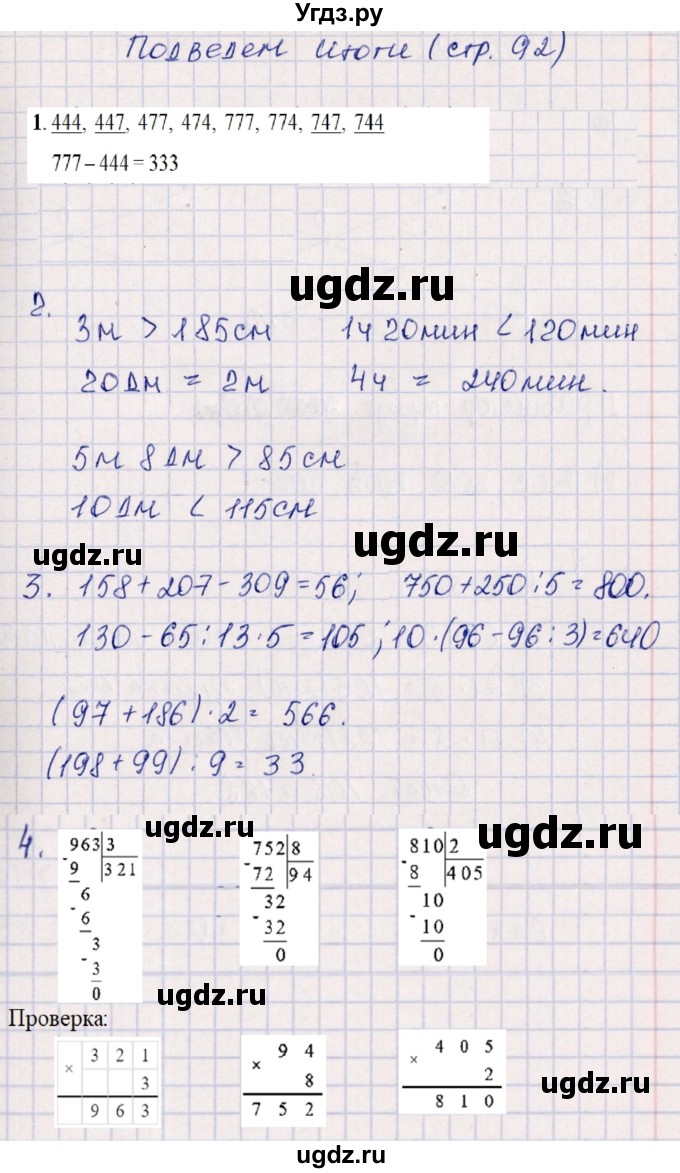 Угдз.ру
Подведем итоги (стр. 92)
1. 444, 447, 477, 474, 777, 774, 747, 744
777 – 444 = 333
ugdz.ru
2.
3м > 185см 1ч 20мин < 120мин
20дм = 2м 4ч = 240мин.
5м 8дм > 85см
10дм < 115см
ugdz.ru
ugdz.ru
3. 158+207-309=56; 750+250:5=800.
130-65:13·5=105; 10·(96-96:3)=640
(97+186)·2=566.
(198+99):9=33.
ugdz.ru
ugdz.ru
4. 963 3 752 8 810 2
- 9 321 - 72 94 - 8 405
6 32 10
- 6 - 32 - 10
3 0 0
- 3
0
ugdz.ru
Проверка:
× 3 2 1 × 9 4 × 4 0 5
3 8 2
9 6 3 7 5 2 8 1 0
ugdz.ru